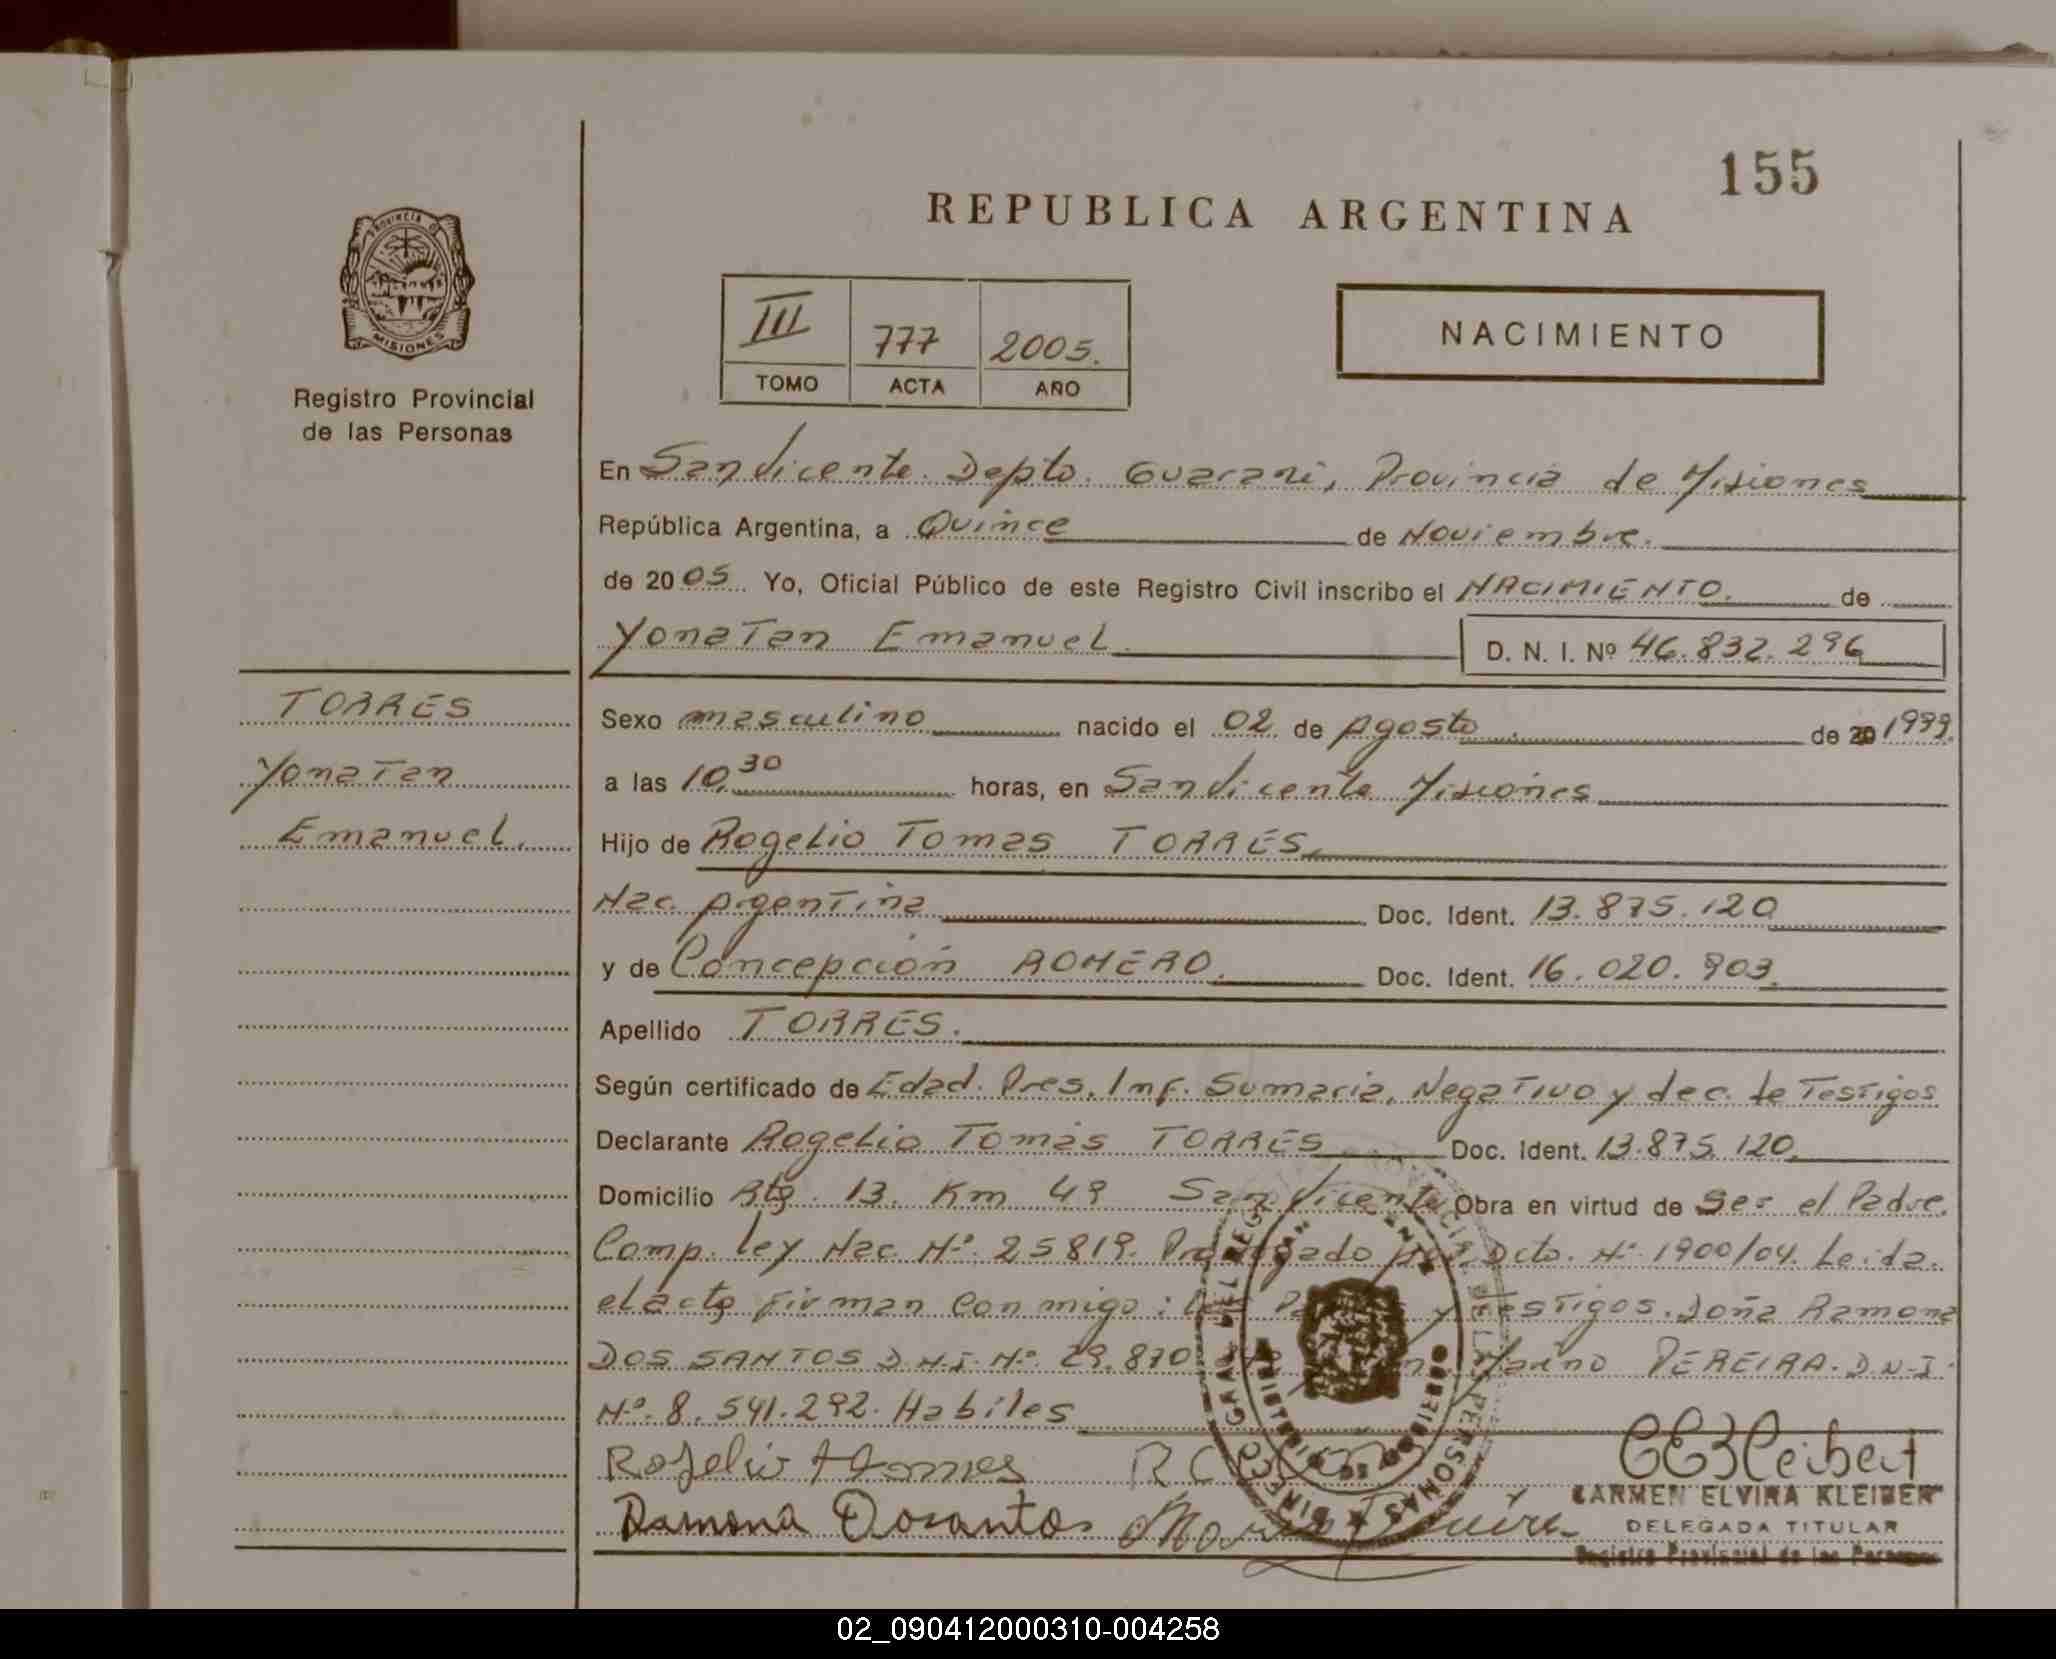 155
REPUBLICA ARGENTINA
PROVINCIA DE
MISIONES
Registro Provincial
de las Personas
III 777 2005.
TOMO ACTA AÑO
NACIMIENTO
En San Vicente. Depto. Guarani, Provincia de Misiones
República Argentina, a Quince de Noviembre.
de 2005. Yo, Oficial Público de este Registro Civil inscribo el NACIMIENTO. de
Yonatan Emanuel D. N. I. Nº 46.832.296
TORRES
Yonatan
Emanuel.
Sexo masculino nacido el 02 de Agosto de 20 1999.
a las 10,30 horas, en San Vicente Misiones
Hijo de Rogelio Tomas TORRES,
Nac. Argentina Doc. Ident. 13.875.120
y de Concepción ROMERO. Doc. Ident. 16.020.903.
Apellido TORRES.
Según certificado de Edad. Pres. Inf. Sumaria, Negativo y dec. de Testigos
Declarante Rogelio Tomás TORRES Doc. Ident. 13.875.120.
Domicilio Rta. 13. Km 49 San Vicente Obra en virtud de Ser el Padre.
Comp. Ley Nac. Nº. 25819. Prorrogado por Dcto. Nº. 1900/04. Leida.
el acta firman conmigo: Testigos. Doña Ramona
DOS SANTOS D.N.I. Nº 29.870 PEREIRA. D.N.I.
Nº. 8.541.292. Habiles
Rogelio tomas R C
Ramona Dosantos
CARMEN ELVIRA KLEIBER
DELEGADA TITULAR
Registro Provincial de las Personas
02_090412000310-004258